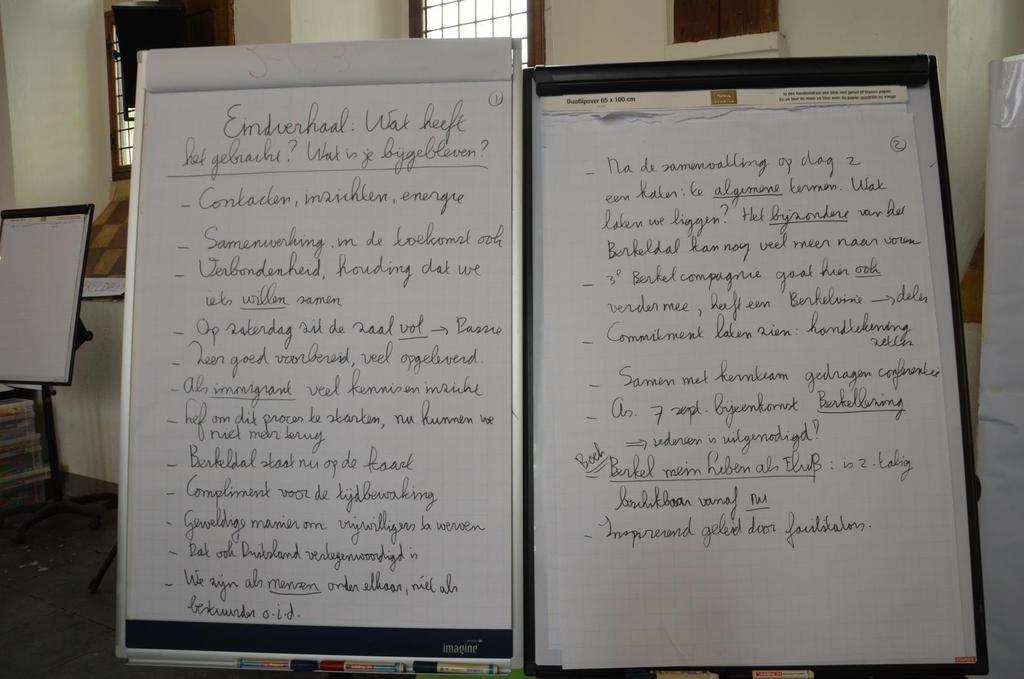 1
Eindverhaal: Wat heeft
het gebracht? Wat is je bijgebleven?
- Contacten, inzichten, energie
- Samenwerking, in de toekomst ook
- Verbondenheid, houding dat we
iets willen samen
- Op zaterdag zit de zaal vol → Passie
- Zeer goed voorbereid, veel opgeleverd.
- Als immigrant veel kennis en inzicht
- lef om dit proces te starten, nu kunnen we
niet meer terug
- Berkeldal staat nu op de kaart
- Compliment voor de tijdbewaking
- Geweldige manier om vrijwilligers te werven
- Dat ook Duitsland vertegenwoordigd is
- We zijn als mensen onder elkaar, niet als
bestuurder o.i.d.
imagine
Duoflipover 65 x 100 cm
2
- Na de samenvatting op dag 2
een kater: te algemene termen. Wat
laten we liggen? Het bijzondere van het
Berkeldal kan nog veel meer naar voren
- 3e Berkelcompagnie gaat hier ook
verder mee, heeft een Berkelvisie → delen
- Commitment laten zien: handtekening
zetten
- Samen met kernteam gedragen conferentie
- As. 7 sept. bijeenkomst Berkellezing
⇒ iedereen is uitgenodigd!
Boek Berkel mein Leben als Fluß: is 2-talig
beschikbaar vanaf nu
- Inspirerend geleid door facilitators.